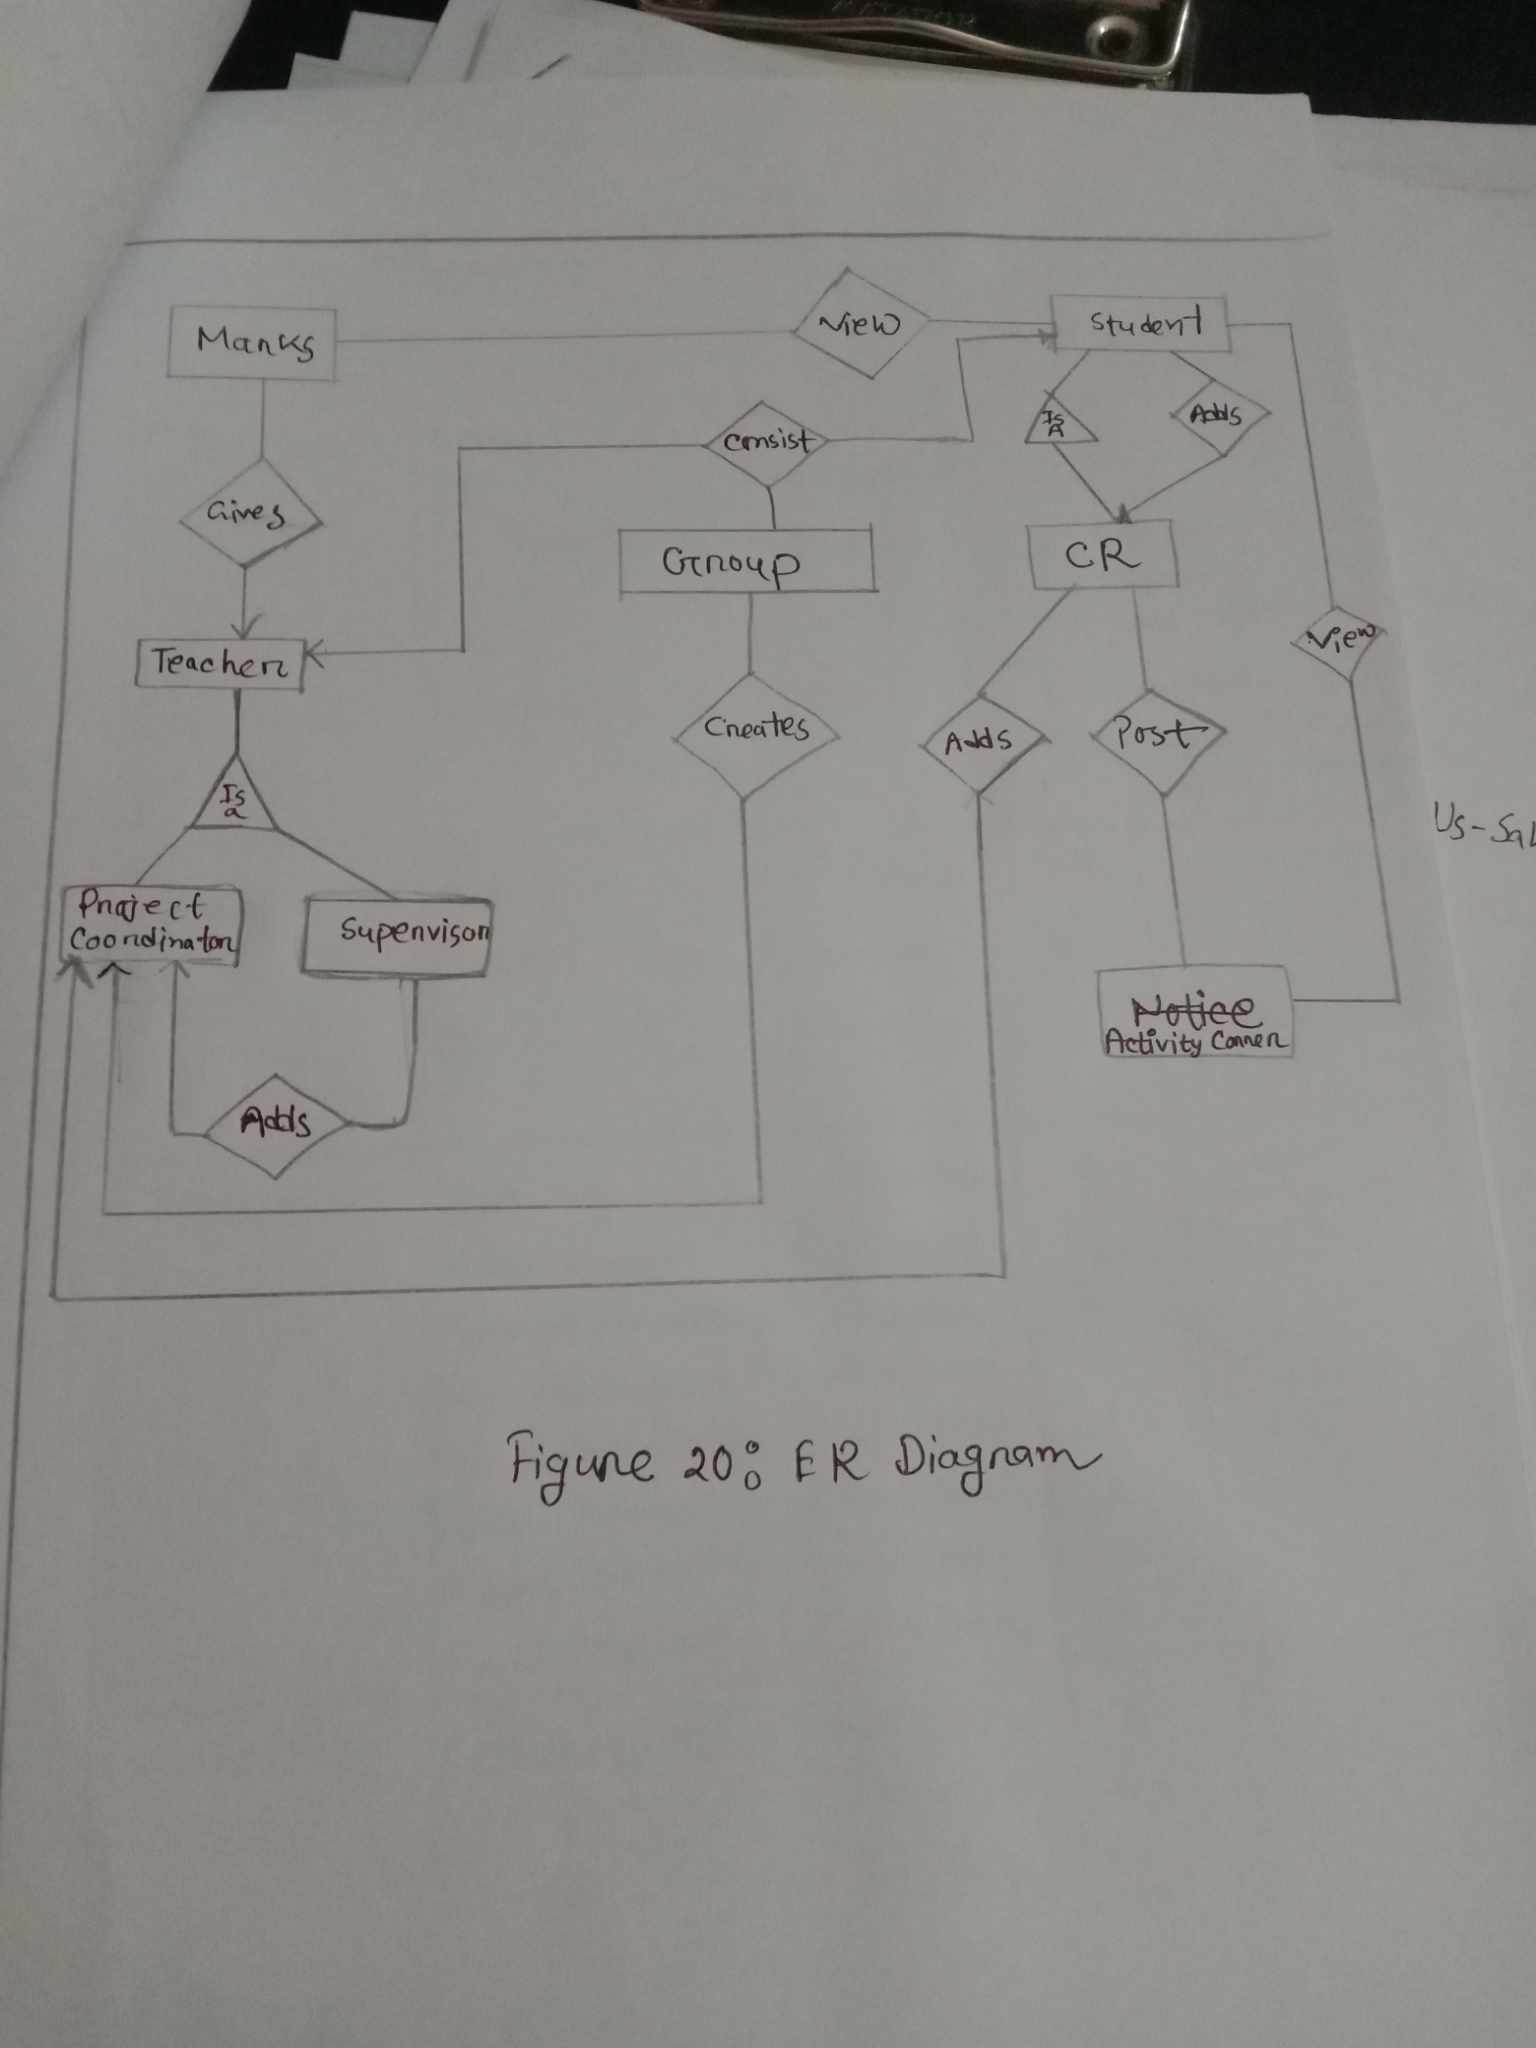 Marks
View
Student
Consist
Is
A
Adds
Gives
Group
CR
Teacher
View
Creates
Adds
Post
Is
a
Project
Coordinator
Supervisor
Notice
Activity Corner
Adds
Figure 20: ER Diagram